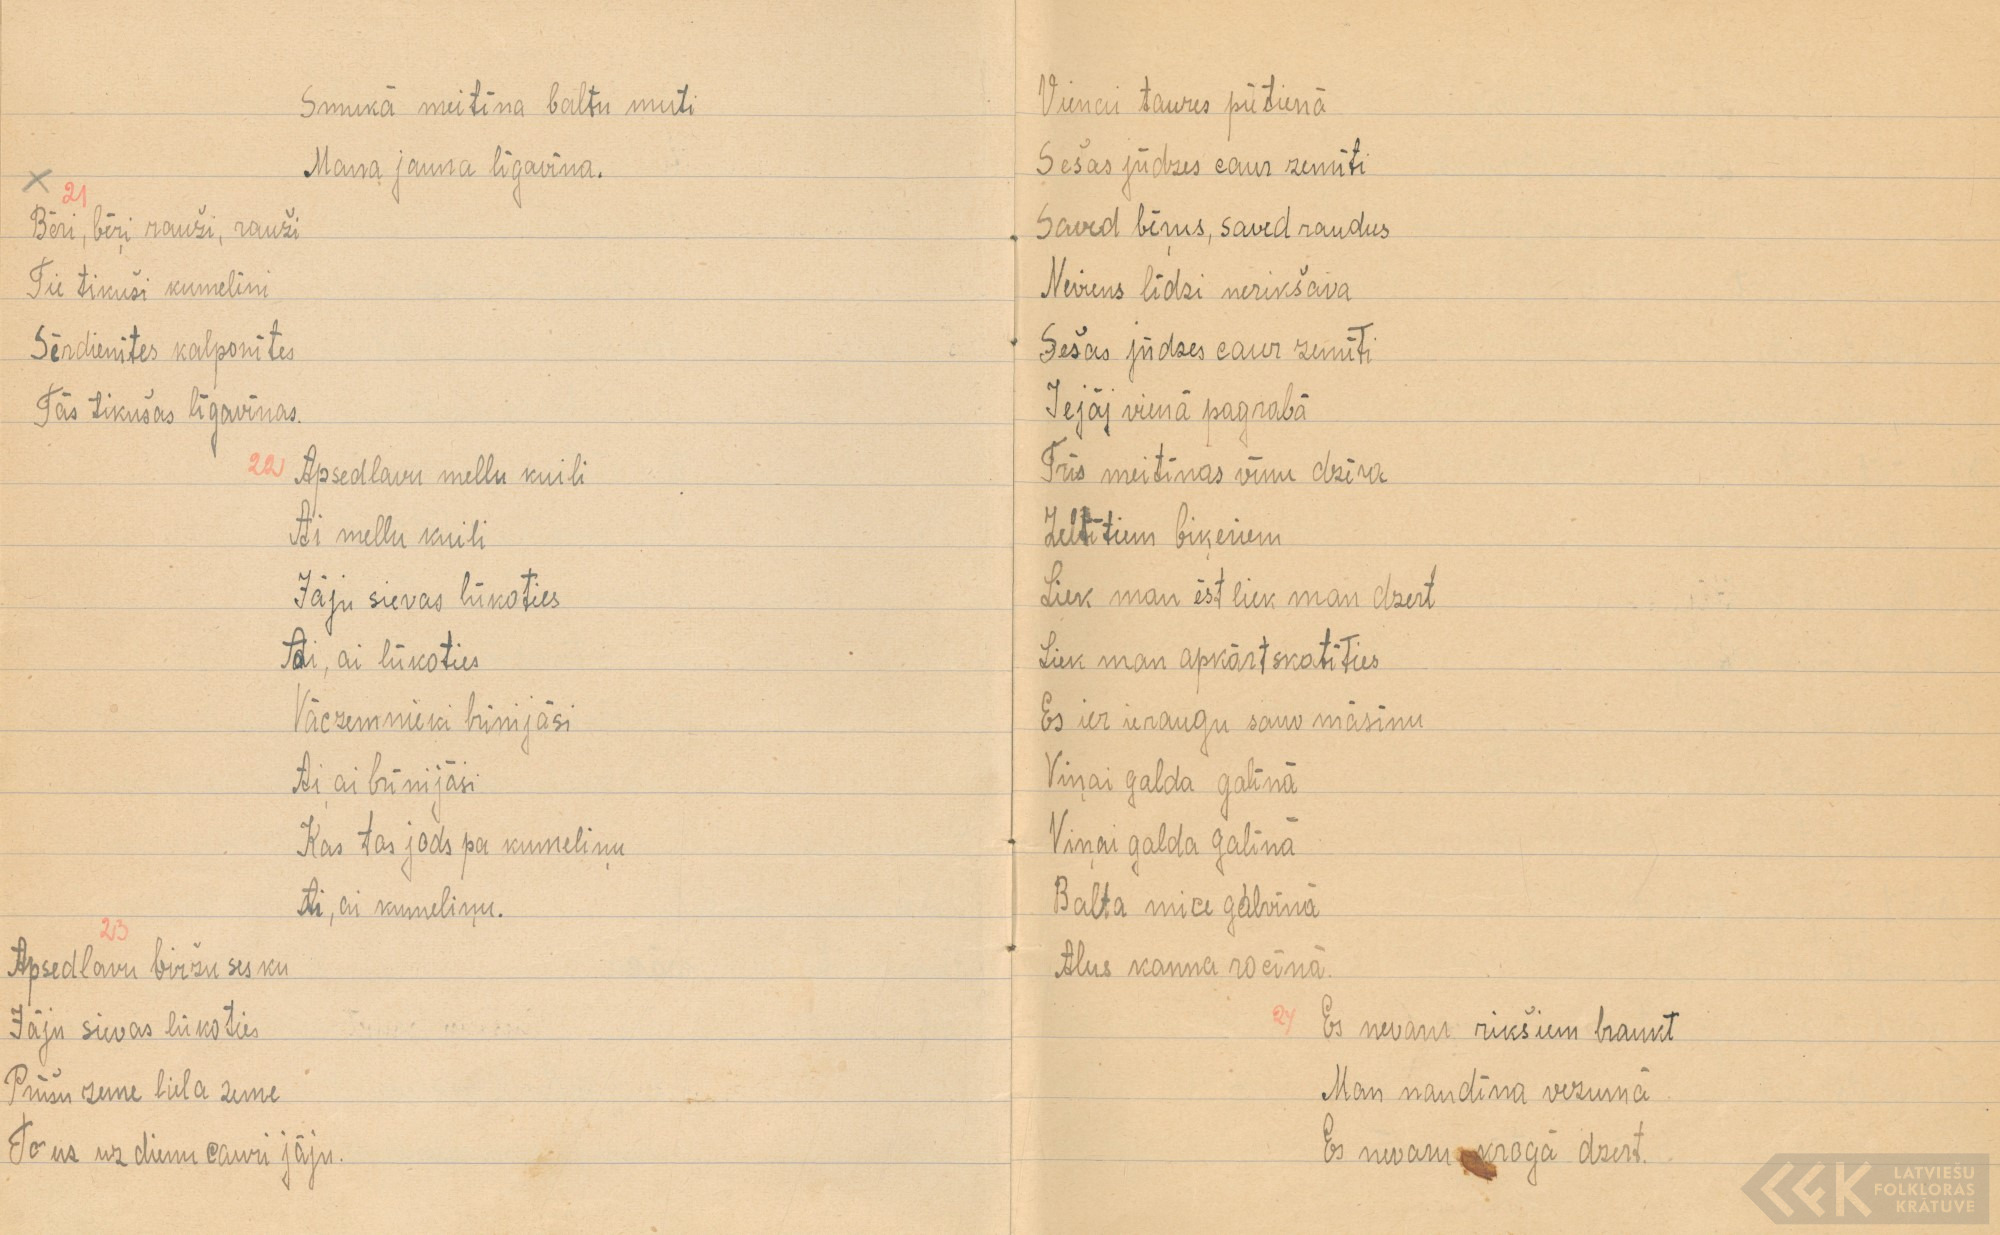 Smukā meitīna baltu muti
Mana jauna līgavīna.
21
Bēri, bēŗi rauži, rauži
Tie tikuši kumelīni
Sērdienītes kalponītes
Tās tikušas līgavīnas.
22 Apsedlavu mellu kuili
Ai mellu kuili
Jāju sievas lūkoties
Ai, ai lūkoties
Vāczemnieki brīnijāsi
Ai, ai brīnijāsi
Kas tas jods pa kumeliņu
Ai, ai kumeliņu.
23
Apsedlavu biržu sesku
Jāju sievas lūkoties
Prūšu zeme liela zeme
To es uz dienu cauri jāju.
Vienai taures pūtienā
Sešas jūdzes caur zemīti
Saved bēŗus, saved raudus
Neviens līdzi nerikšāva
Sešas jūdzes caur zemīti
Iejāj vienā pagrabā
Trīs meitīnas vīnu dzēra
Zeltītiem biķeriem
Liek man ēst liek man dzert
Liek man apkārt skatīties
Es ier ieraugu savu māsīnu
Viņai galda galīnā
Viņai galda galīnā
Balta mice galvīnā
Alus kanna rocīnā.
24 Es nevaru rikšiem braukt
Man naudīna vezumā
Es nevaru krogā dzert.
LATVIEŠU
FOLKLORAS
KRĀTUVE